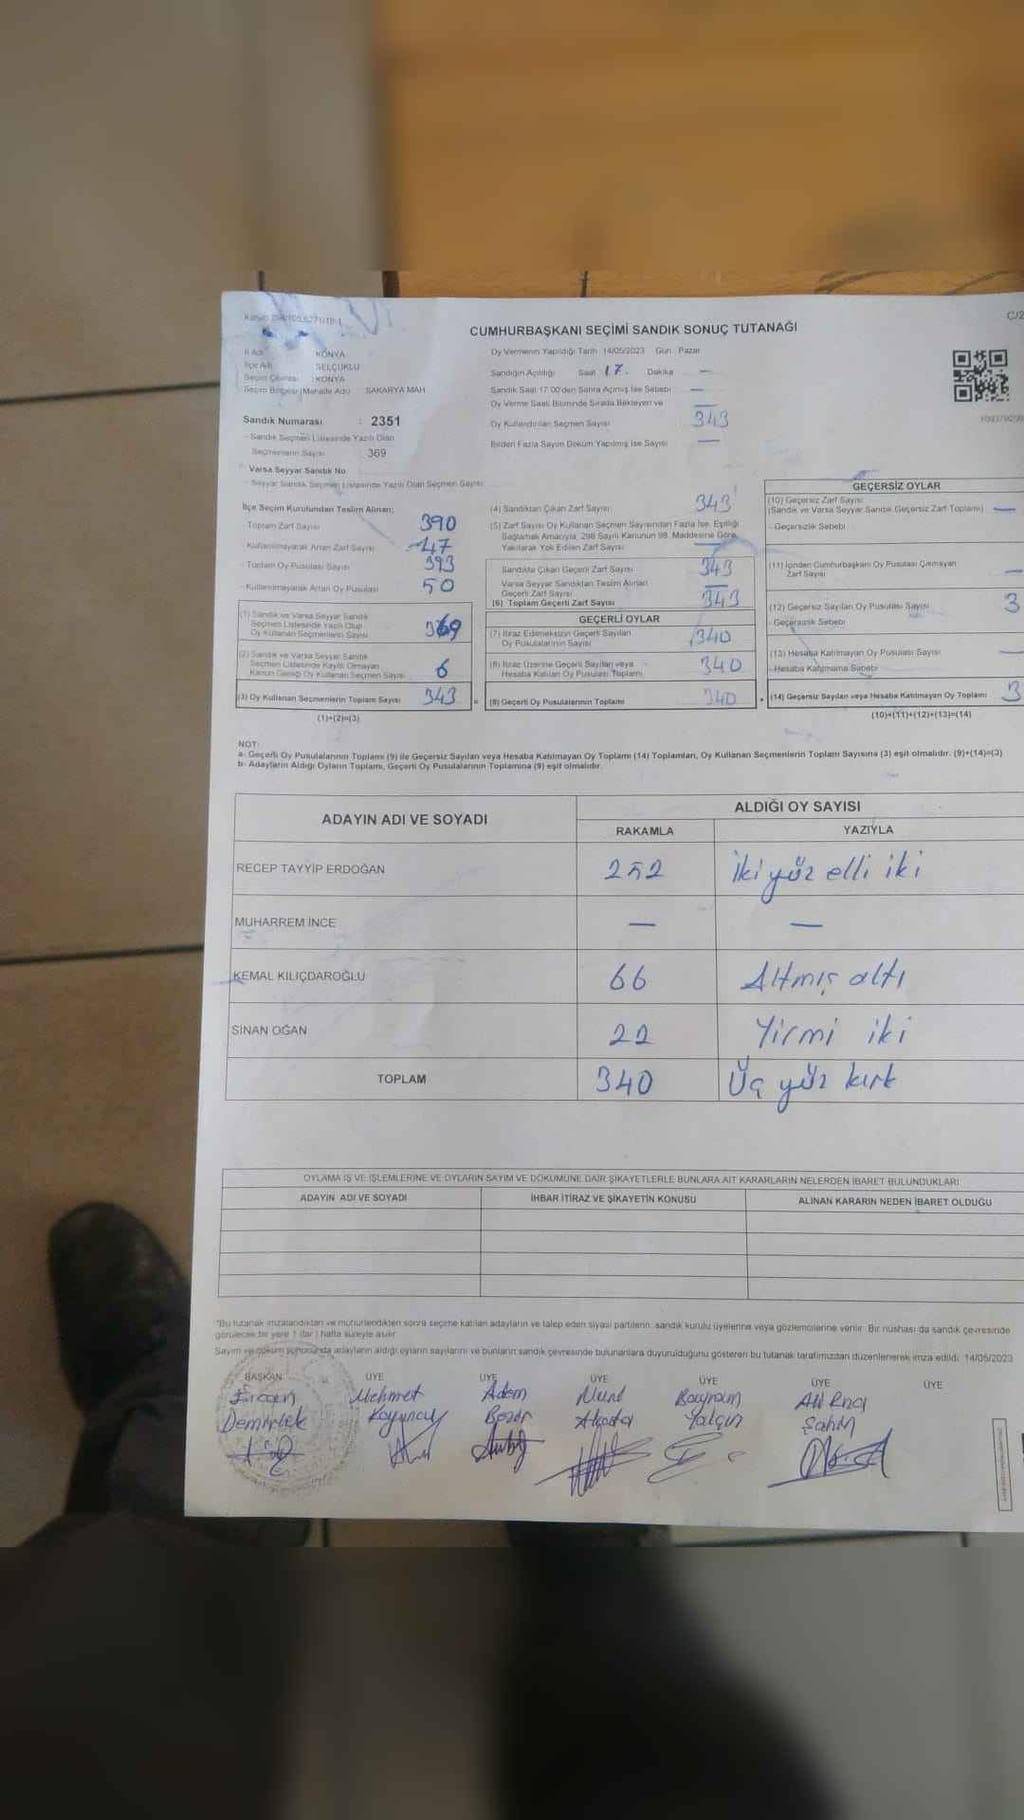 CUMHURBAŞKANI SEÇİMİ SANDIK SONUÇ TUTANAĞI
C/2
İl Adı : KONYA
İlçe Adı : SELÇUKLU
Seçim Çevresi : KONYA
Seçim Bölgesi (Mahalle Adı) : SAKARYA MAH
Sandık Numarası : 2351
- Sandık Seçmen Listesinde Yazılı Olan
Seçmenlerin Sayısı 369
Varsa Seyyar Sandık No
- Seyyar Sandık Seçmen Listesinde Yazılı Olan Seçmen Sayısı
Oy Vermenin Yapıldığı Tarih 14/05/2023 Gün Pazar
Sandığın Açıldığı Saat 17. Dakika —
Sandık Saat 17.00'den Sonra Açılmış İse Sebebi —
Oy Verme Saati Bitiminde Sırada Bekleyen ve —
Oy Kullandırılan Seçmen Sayısı 343
Birden Fazla Sayım Döküm Yapılmış İse Sayısı —
İlçe Seçim Kurulundan Teslim Alınan;
- Toplam Zarf Sayısı 390
- Kullanılmayarak Artan Zarf Sayısı 47
- Toplam Oy Pusulası Sayısı 393
- Kullanılmayarak Artan Oy Pusulası 50
(1) Sandık ve Varsa Seyyar Sandık
Seçmen Listesinde Yazılı Olup
Oy Kullanan Seçmenlerin Sayısı
(2) Sandık ve Varsa Seyyar Sandık
Seçmen Listesinde Kayıtlı Olmayan
Kanun Gereği Oy Kullanan Seçmen Sayısı 6
(3) Oy Kullanan Seçmenlerin Toplam Sayısı 343
(1)+(2)=(3)
(4) Sandıktan Çıkan Zarf Sayısı 343
(5) Zarf Sayısı Oy Kullanan Seçmen Sayısından Fazla İse, Eşitliği
Sağlamak Amacıyla, 298 Sayılı Kanunun 98. Maddesine Göre
Yakılarak Yok Edilen Zarf Sayısı —
Sandıkta Çıkan Geçerli Zarf Sayısı 343
Varsa Seyyar Sandıktan Teslim Alınan
Geçerli Zarf Sayısı —
(6) Toplam Geçerli Zarf Sayısı 343
GEÇERLİ OYLAR
(7) İtiraz Edilmeksizin Geçerli Sayılan
Oy Pusulalarının Sayısı 340
(8) İtiraz Üzerine Geçerli Sayılan veya
Hesaba Katılan Oy Pusulası Toplamı 340
(9) Geçerli Oy Pusulalarının Toplamı 340
GEÇERSİZ OYLAR
(10) Geçersiz Zarf Sayısı
(Sandık ve Varsa Seyyar Sandık Geçersiz Zarf Toplamı) —
- Geçersizlik Sebebi
(11) İçinden Cumhurbaşkanı Oy Pusulası Çıkmayan
Zarf Sayısı —
(12) Geçersiz Sayılan Oy Pusulası Sayısı 3
- Geçersizlik Sebebi
(13) Hesaba Katılmayan Oy Pusulası Sayısı —
- Hesaba Katılmama Sebebi
(14) Geçersiz Sayılan veya Hesaba Katılmayan Oy Toplamı 3
(10)+(11)+(12)+(13)=(14)
NOT:
a- Geçerli Oy Pusulalarının Toplamı (9) ile Geçersiz Sayılan veya Hesaba Katılmayan Oy Toplamı (14) Toplamları, Oy Kullanan Seçmenlerin Toplam Sayısına (3) eşit olmalıdır. (9)+(14)=(3)
b- Adayların Aldığı Oyların Toplamı, Geçerli Oy Pusulalarının Toplamına (9) eşit olmalıdır.
ADAYIN ADI VE SOYADI ALDIĞI OY SAYISI
RAKAMLA YAZIYLA
RECEP TAYYİP ERDOĞAN 252 İki yüz elli iki
MUHARREM İNCE — —
KEMAL KILIÇDAROĞLU 66 Altmış altı
SİNAN OĞAN 22 Yirmi iki
TOPLAM 340 Üç yüz kırk
OYLAMA İŞ VE İŞLEMLERİNE VE OYLARIN SAYIM VE DÖKÜMÜNE DAİR ŞİKAYETLERLE BUNLARA AİT KARARLARIN NELERDEN İBARET BULUNDUKLARI
ADAYIN ADI VE SOYADI İHBAR İTİRAZ VE ŞİKAYETİN KONUSU ALINAN KARARIN NEDEN İBARET OLDUĞU
*Bu tutanak imzalandıktan ve mühürlendikten sonra seçime katılan adayların ve talep eden siyasi partilerin, sandık kurulu üyelerine veya gözlemcilerine verilir. Bir nüshası da sandık çevresinde
görülecek bir yere 1 (bir) hafta süreyle asılır.
Sayım ve döküm sonucunda adayların aldığı oyların sayılarını ve bunların sandık çevresinde bulunanlara duyurulduğunu gösteren bu tutanak tarafımızdan düzenlenerek imza edildi. 14/05/2023
BAŞKAN ÜYE ÜYE ÜYE ÜYE ÜYE ÜYE
Mehmet Adem Bayram Ali Rıza
Yalçın Şahin